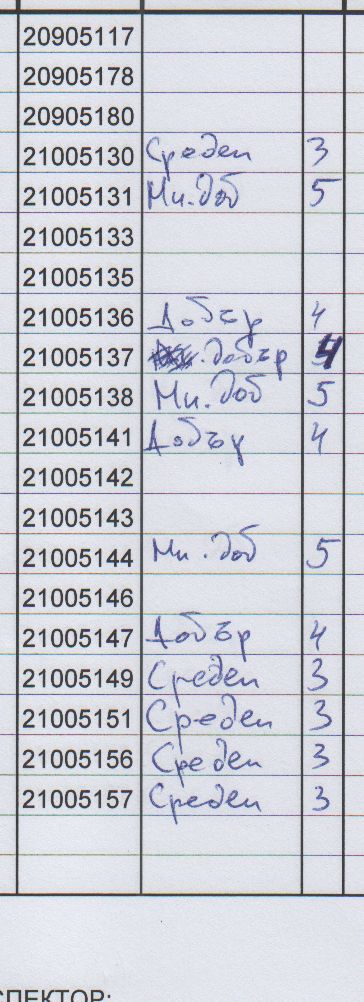 20905117
20905178
20905180
21005130 Среден 3
21005131 Мн. доб 5
21005133
21005135
21005136 Добър 4
21005137 . добър 4
21005138 Мн. доб 5
21005141 Добър 4
21005142
21005143
21005144 Мн. доб 5
21005146
21005147 Добър 4
21005149 Среден 3
21005151 Среден 3
21005156 Среден 3
21005157 Среден 3
СПЕКТОР: